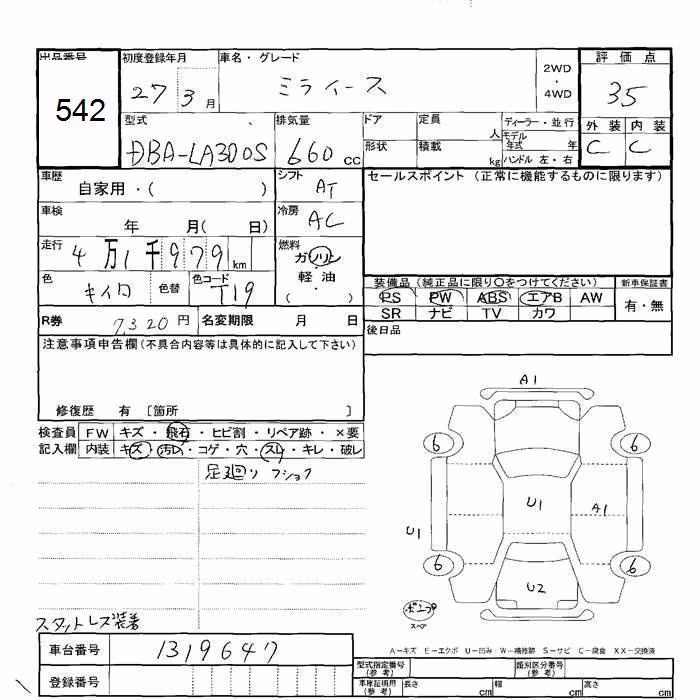 出品番号 初度登録年月 車名・グレード 2WD・4WD 評価点
542 27 3月 ミライース 35
型式 排気量 ドア 定員 人 ディーラー・並行 外装 内装
DBA-LA300S 660cc 形状 積載 kg モデル年式 年 ハンドル 左・右 C C
車歴 自家用・( ) シフト AT セールスポイント (正常に機能するものに限ります)
車検 年 月( 日) 冷房 AC
走行 4万1千979km 燃料 ガソリン
色 キイロ 色替 色コード T19 軽・油 ・( )
装備品 (純正品に限り○をつけてください) 新車保証書
PS PW ABS エアB AW 有・無
SR ナビ TV カワ
R券 7320円 名変期限 月 日 後日品
注意事項申告欄(不具合内容等は具体的に記入して下さい)
修復歴 有 [箇所 ]
検査員 FW キズ・飛石・ヒビ割・リペア跡・×要
記入欄 内装 キズ・汚レ・コゲ・穴・スレ・キレ・破レ
足廻り フショク
A1
6 6
U1 U1 A1
6 6
U2
ポンプ
スペア
スタットレス装着
A−キズ E−エクボ U−凹み W−補修跡 S−サビ C−腐食 XX−交換済
車台番号 1319647
登録番号
型式指定番号(参考) 類別区分番号(参考)
車庫証明用(参考) 長さ cm 幅 cm 高さ cm